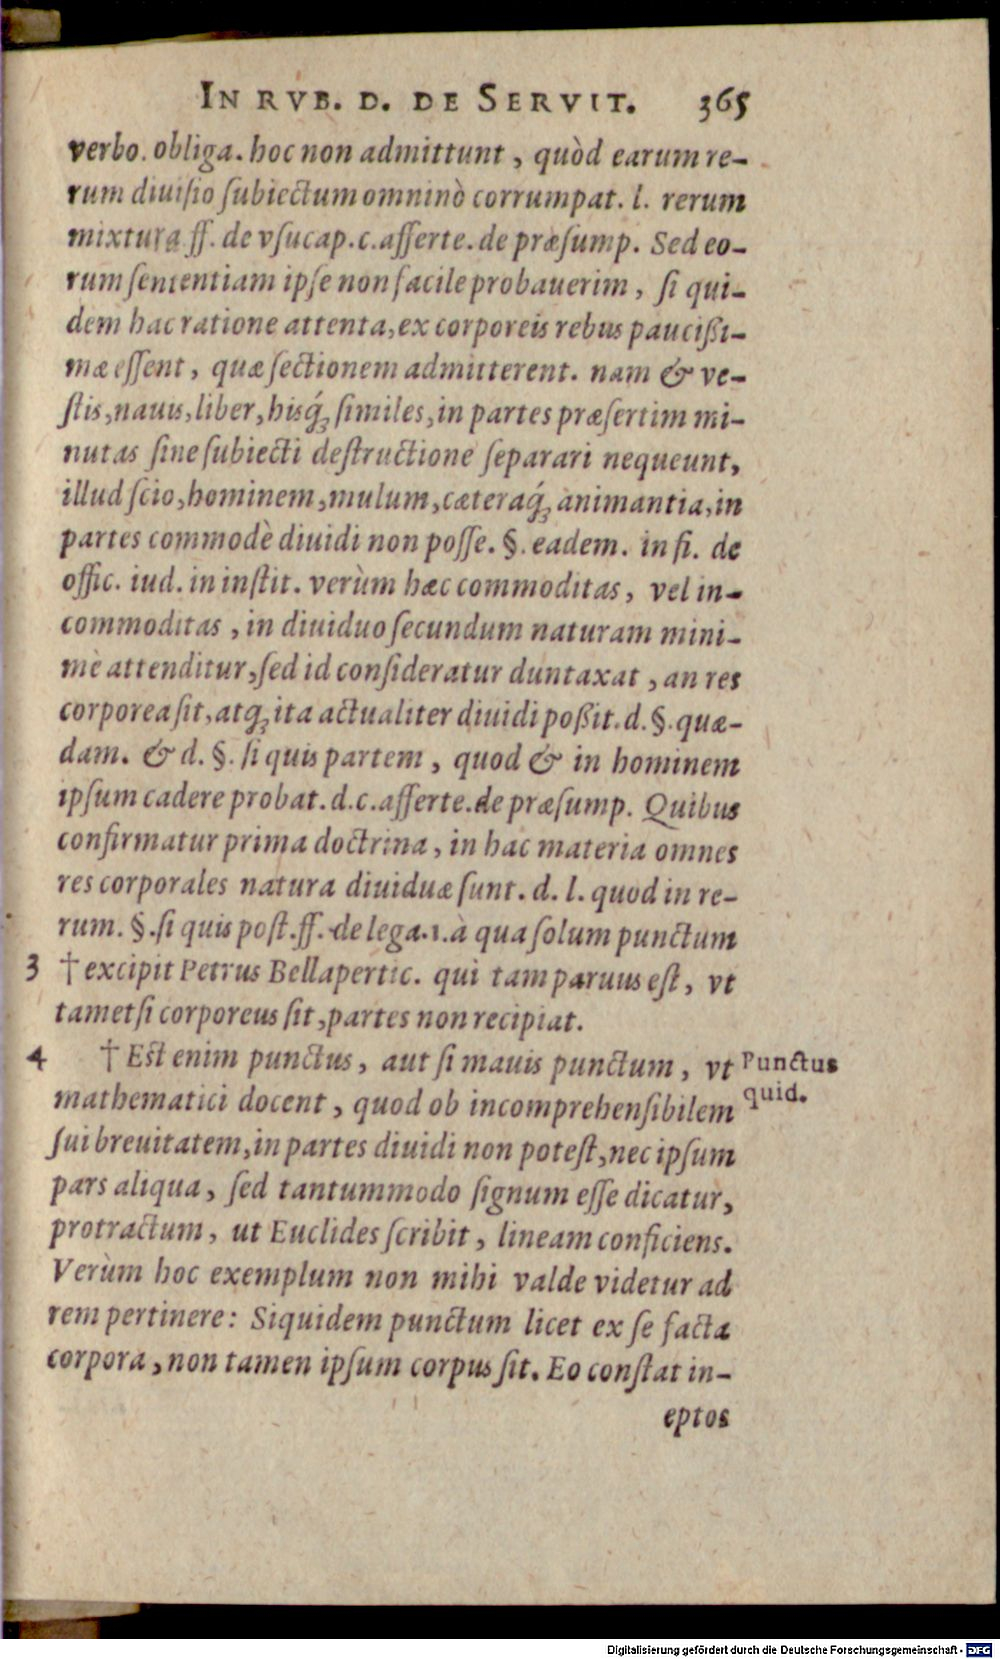 IN RVB. D. DE SERVIT. 365
verbo. obliga. hoc non admittunt, quòd earum re-
rum diuisio ſubiectum omninò corrumpat. l. rerum
mixtura ff. de vſucap. c. afferte. de præſump. Sed eo-
rum ſententiam ipſe non facile probauerim, ſi qui-
dem hac ratione attenta, ex corporeis rebus paucißi-
mæ eſſent, quæ ſectionem admitterent. nam & ve-
ſtis, nauis, liber, hisq́; ſimiles, in partes præſertim mi-
nutas ſine ſubiecti deſtructione ſeparari nequeunt,
illud ſcio, hominem, mulum, cæteraq́; animantia, in
partes commodè diuidi non poſſe. §. eadem. in fi. de
offic. iud. in inſtit. verùm hæc commoditas, vel in-
commoditas, in diuiduo ſecundum naturam mini-
mè attenditur, ſed id conſideratur duntaxat, an res
corporea ſit, atq; ita actualiter diuidi poßit. d. §. quæ-
dam. & d. §. ſi quis partem, quod & in hominem
ipſum cadere probat. d. c. afferte. de præſump. Quibus
confirmatur prima doctrina, in hac materia omnes
res corporales natura diuiduæ ſunt. d. l. quod in re-
rum. §. ſi quis poſt. ff. de lega. 1. à qua ſolum punctum
3 † excipit Petrus Bellapertic. qui tam paruus eſt, vt
tametſi corporeus ſit, partes non recipiat.
4 † Eſt enim punctus, aut ſi mauis punctum, vt
Punctus
quid.
mathematici docent, quod ob incomprehenſibilem
ſui breuitatem, in partes diuidi non poteſt, nec ipſum
pars aliqua, ſed tantummodo ſignum eſſe dicatur,
protractum, ut Euclides ſcribit, lineam conficiens.
Verùm hoc exemplum non mihi valde videtur ad
rem pertinere: Siquidem punctum licet ex ſe facta
corpora, non tamen ipſum corpus ſit. Eo conſtat in-
eptos
Digitalisierung gefördert durch die Deutsche Forschungsgemeinschaft - DFG